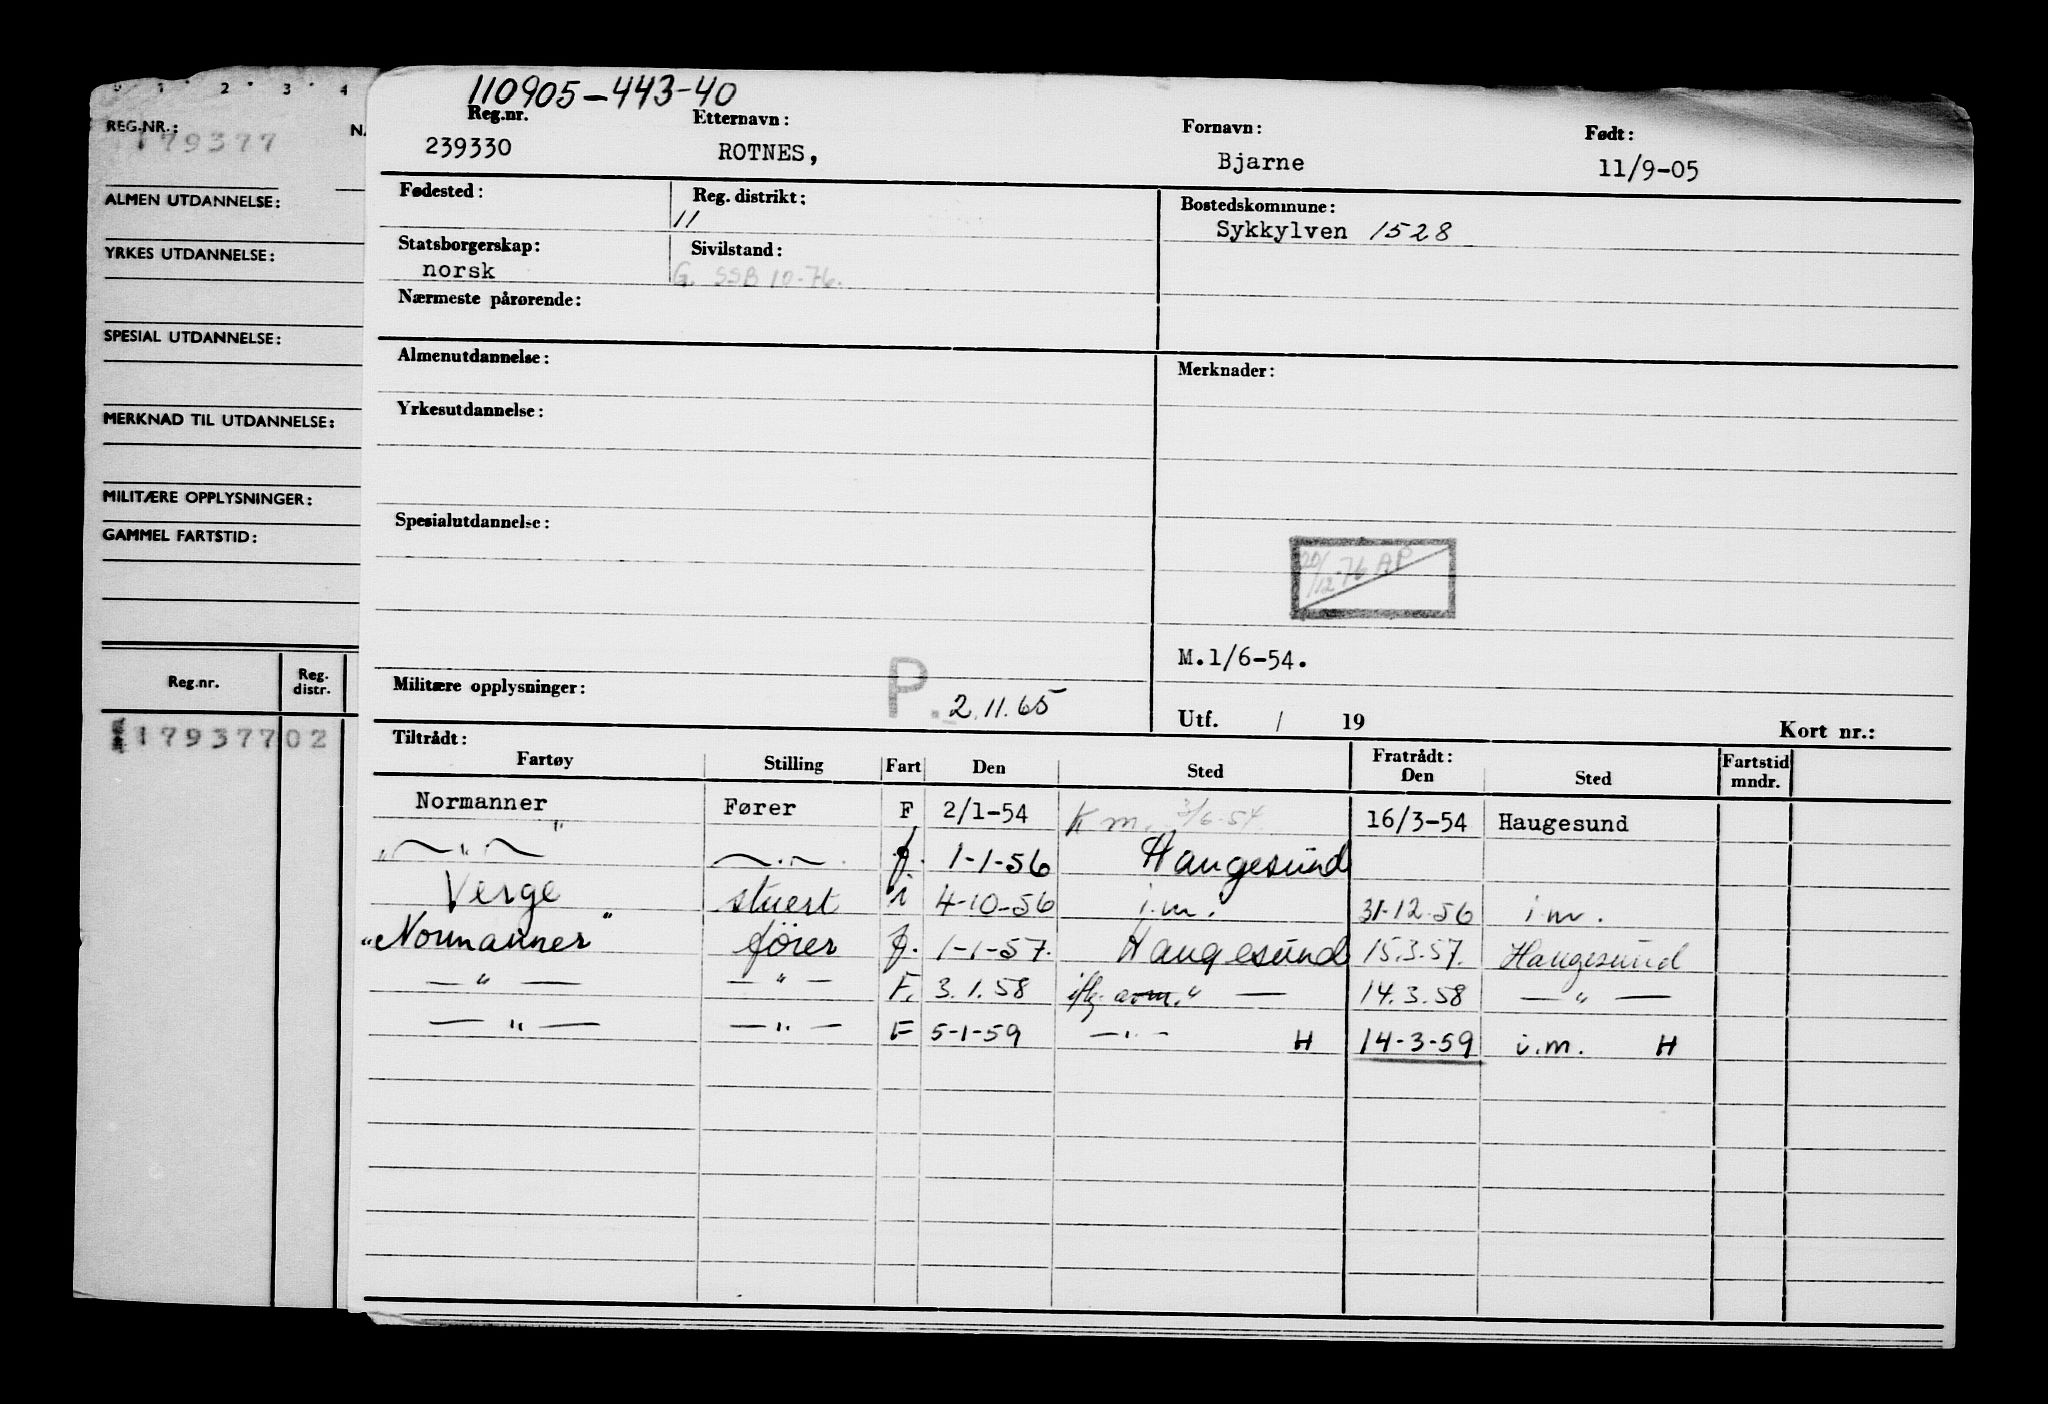 0 1 2 3 4
REG.NR.:
179377
ALMEN UTDANNELSE:
YRKES UTDANNELSE:
SPESIAL UTDANNELSE:
MERKNAD TIL UTDANNELSE:
MILITÆRE OPPLYSNINGER:
GAMMEL FARTSTID:
Reg.nr. Reg. distr.
179377 02
110905-443-40
Reg.nr. Etternavn: Fornavn: Født:
239330 ROTNES, Bjarne 11/9-05
Fødested: Reg. distrikt: Bostedskommune:
11 Sykkylven 1528
Statsborgerskap: Sivilstand:
norsk G. SSB 10-76.
Nærmeste pårørende:
Almenutdannelse: Merknader:
Yrkesutdannelse:
Spesialutdannelse:
20/12-76 AP
M.1/6-54.
Militære opplysninger: P. 2.11.65
Utf. / 19 Kort nr.:
Tiltrådt: Fratrådt:
Fartøy Stilling Fart Den Sted Den Sted Fartstid mndr.
Normanner Fører F 2/1-54 K m. 3/6-54. 16/3-54 Haugesund
" — " — — " — f. 1-1-56 Haugesund
Verge stuert i 4-10-56 i.m. 31-12-56 i m.
"Normanner" fører f. 1-1-57. Haugesund 15.3.57. Haugesund
— " — — " — F. 3.1.58 iflg. avm. " — 14.3.58 — " —
— " — — " — F 5-1-59 — " — H 14-3-59 i.m. H